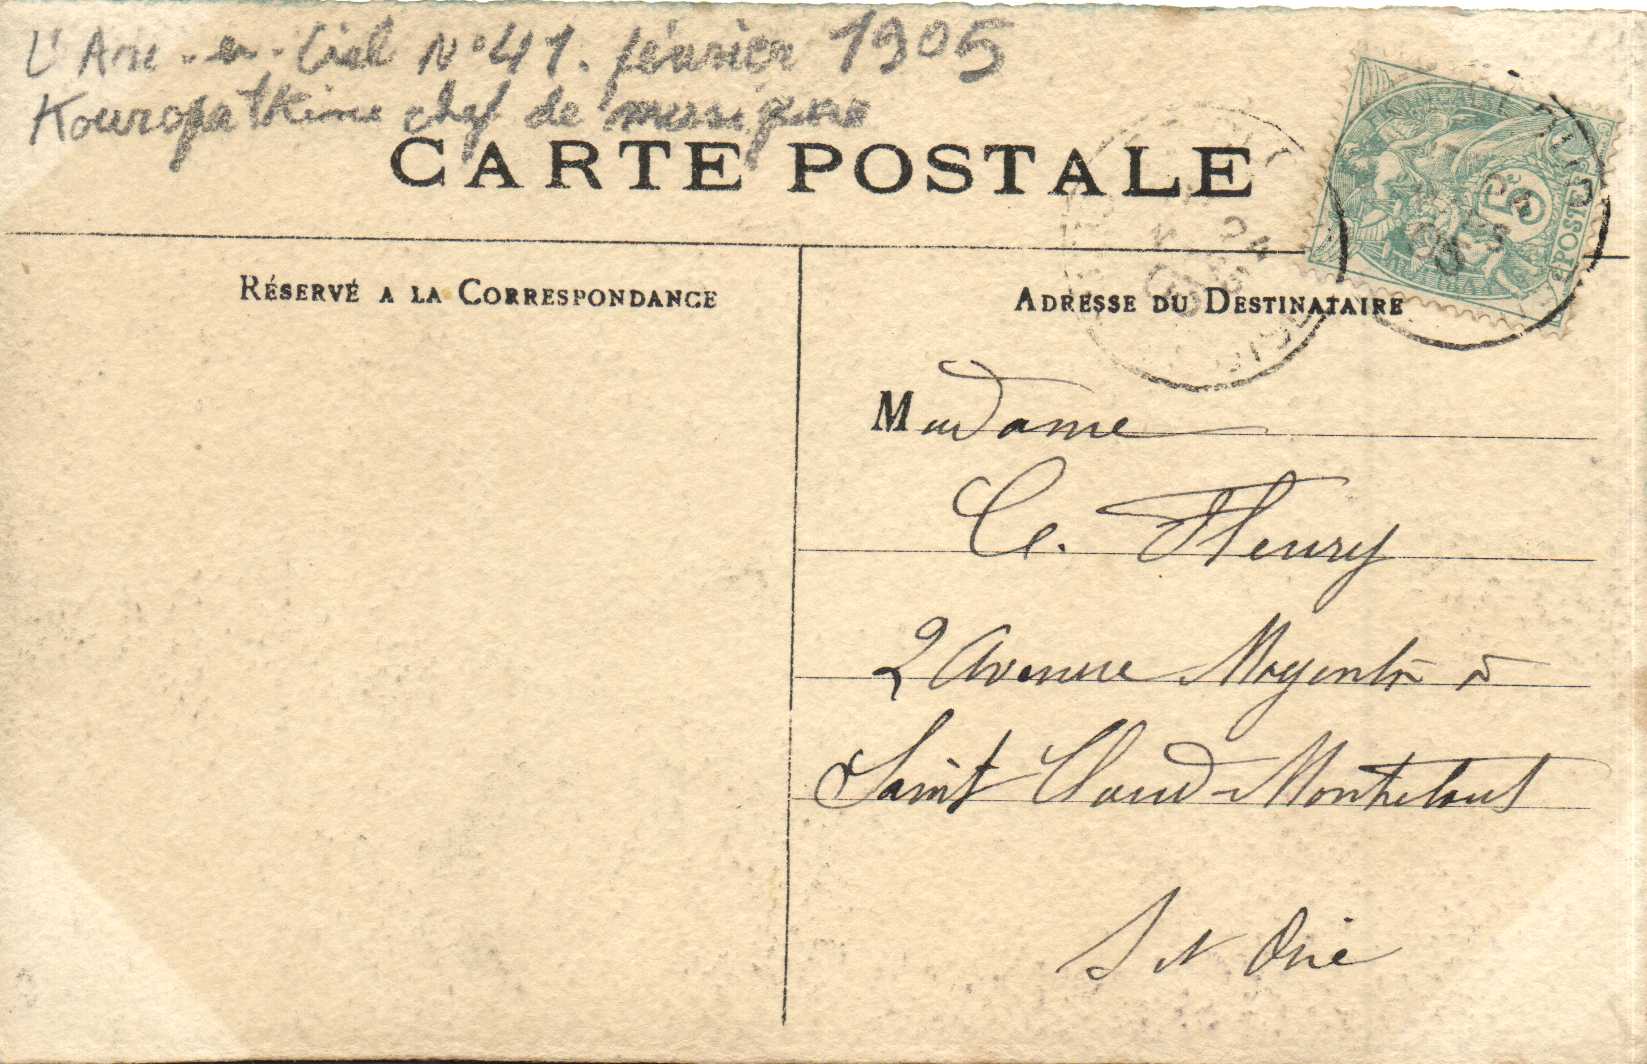 L'Arc-en-Ciel N°41. février 1905
Kouropatkine chef de musique
CARTE POSTALE
RÉSERVÉ A LA CORRESPONDANCE
ADRESSE DU DESTINATAIRE
POSTES
Madame
Ce. Fleury
2 Avenue Magenta à
Saint Cloud-Montretout
S et Oise